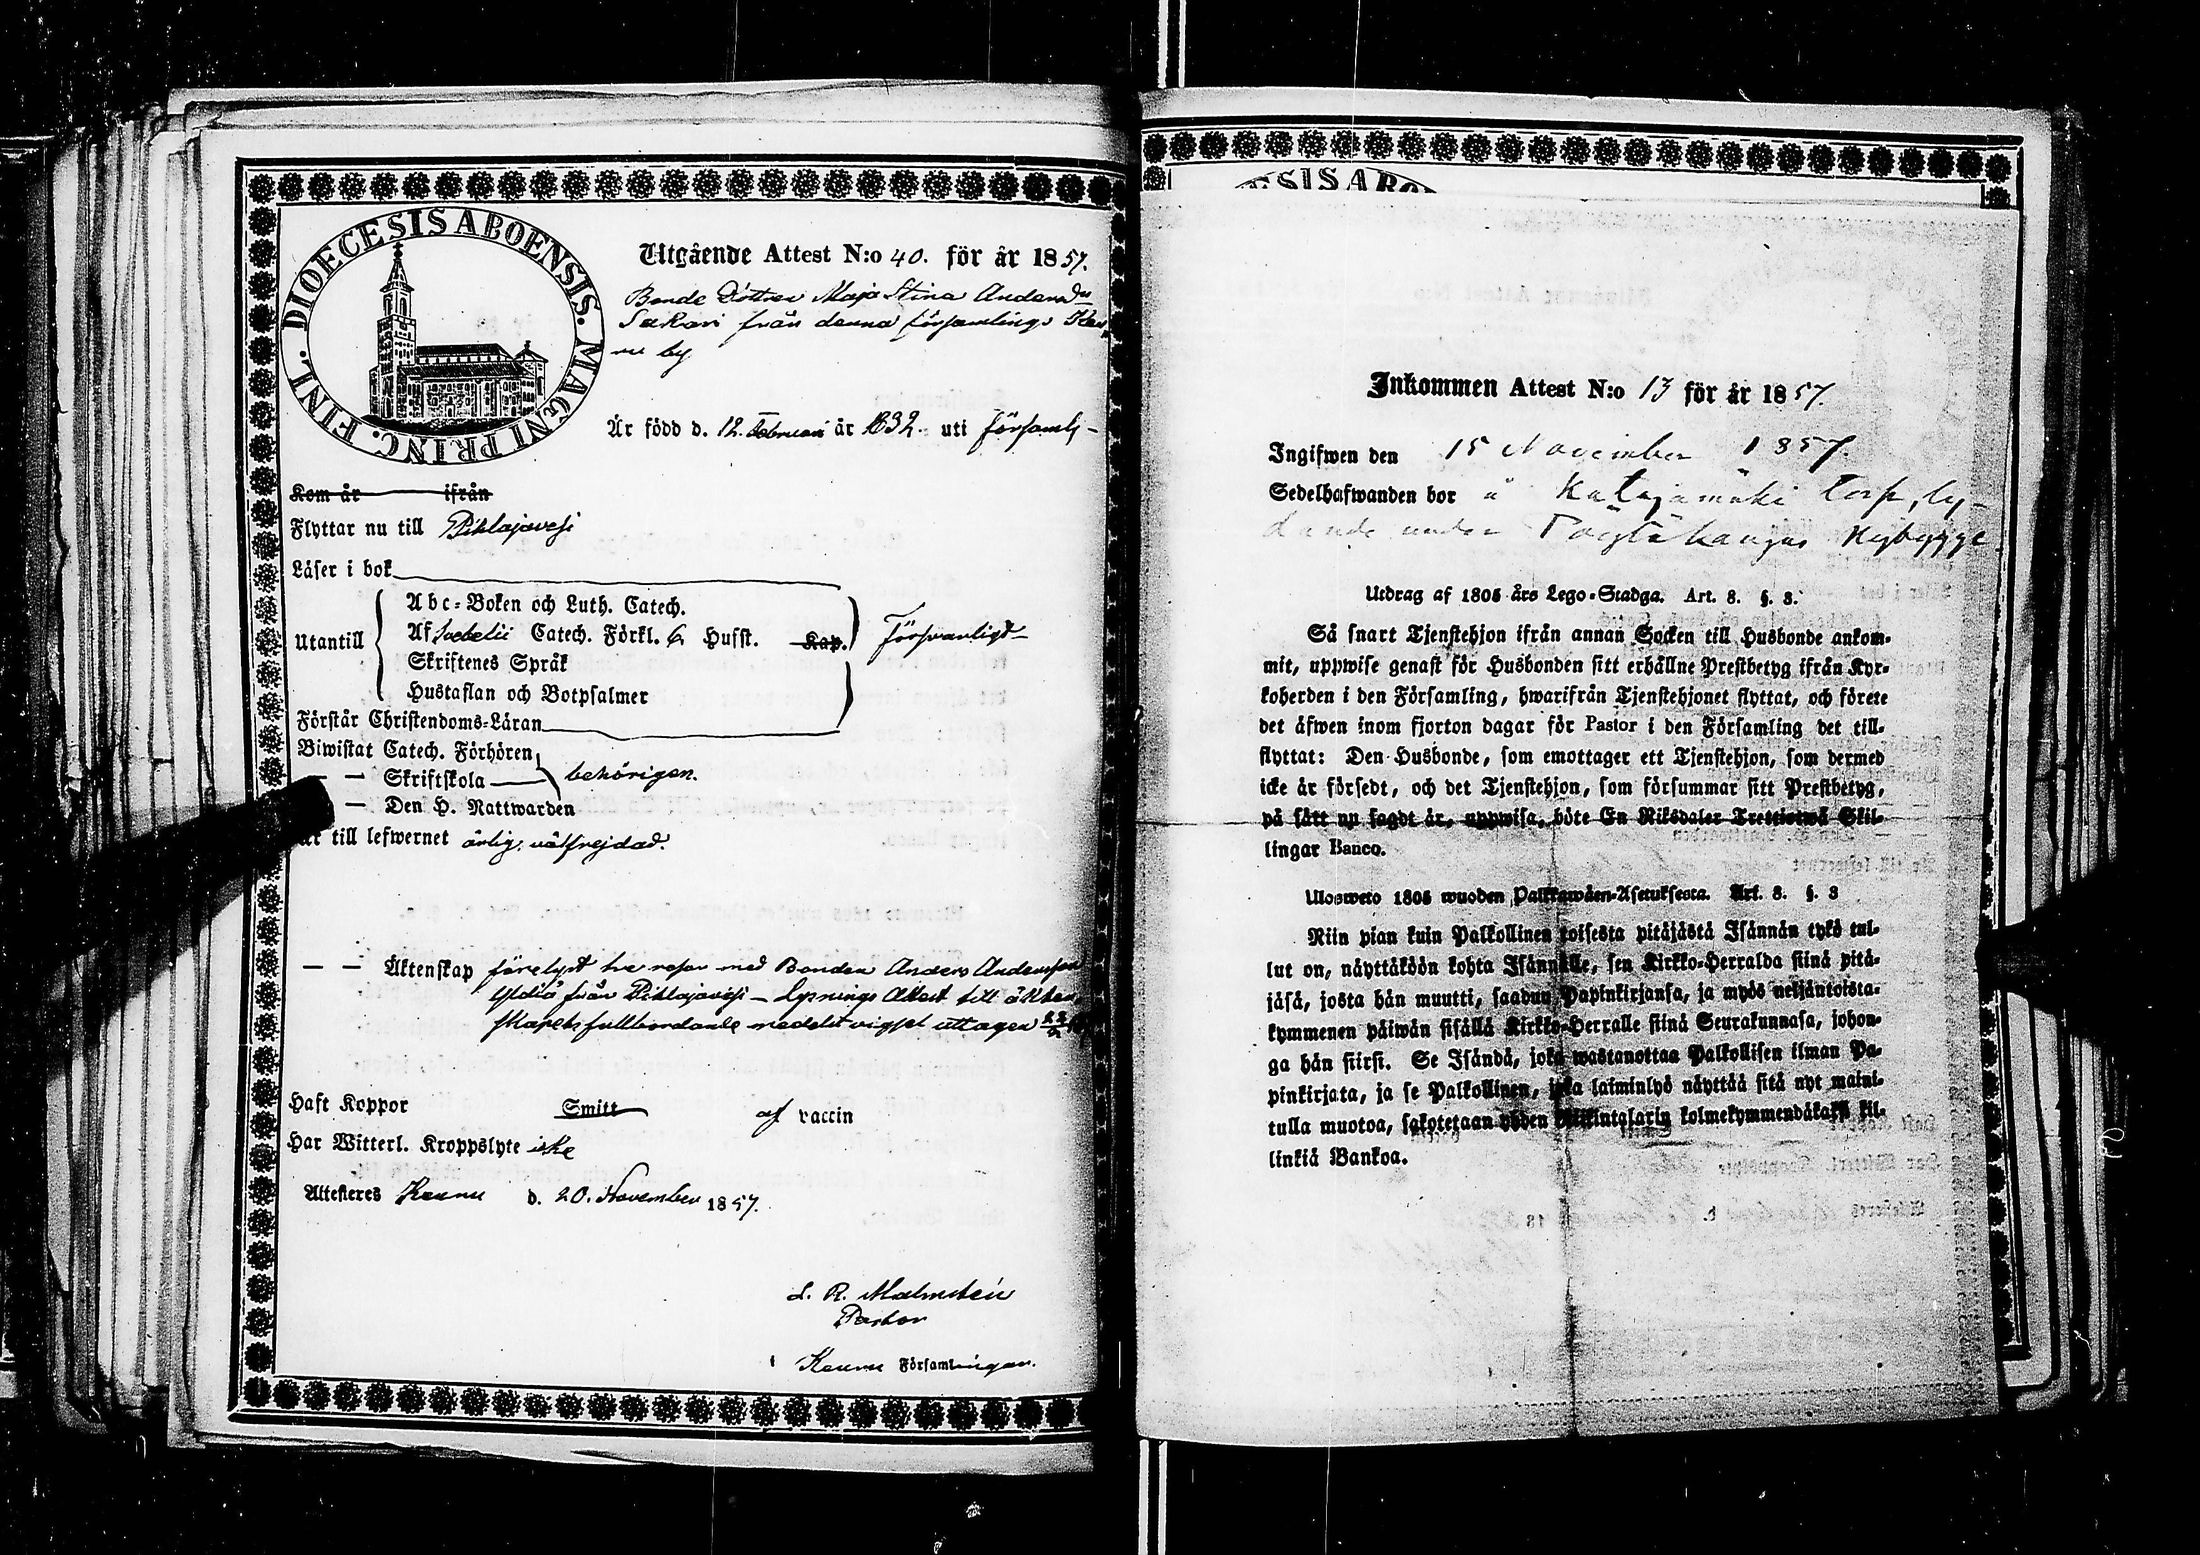 DIOECESIS ABOENSIS. MAGNI PRINC. FINL.
Utgående Attest N:o 40. för år 1857.
Bonde Dottren Maja Stina Andersdr
Sakari från denna församlings Keu
ru by
Är född d. 12. Februari år 1832. uti församl-
Kom år ifrån
Flyttar nu till Pihlajavesi
Läser i bok
Abc-Boken och Luth. Catech.
Utantill Af Svebelii Catech. Förkl. & Husst. Kap. Försvarligt
Skriftenes Språk
Hustaflan och Botpsalmer
Förstår Christendoms-Läran
Biwistat Catech. Förhören
— — Skriftskola behörigen.
— Den H. Nattwarden
är till lefwernet ärlig, välfrejdad.
— — Äktenskap förelyst tre resor med Bonden Anders Andersson
från Pihlajavesi – Lysnings Attest till äkten
skapets fullbordande meddelt vigsel uttagen
Haft Koppor Smitt af vaccin
Har Witterl. Kroppslyte icke
Attesteres Keuru d. 20. November 1857.
L. R. Malmstén
Pastor
i Keuru Församlingen.
ESIS ABO
Inkommen Attest N:o 13 för år 1857.
Ingifwen den 15 November 1857.
Sedelhafwanden bor å Katajamäki torp, ly-
dande under Nybygge
Utdrag af 1805 års Lego-Stadga. Art. 8. §. 3.
Så snart Tjenstehjon ifrån annan Socken till Husbonde ankom-
mit, uppwise genast för Husbonden sitt erhållne Prestbetyg ifrån Kyr-
koherden i den Församling, hwarifrån Tjenstehjonet flyttat, och förete
det äfwen inom fjorton dagar för Pastor i den Församling det till-
flyttat: Den Husbonde, som emottager ett Tjenstehjon, som dermed
icke är försedt, och det Tjenstehjon, som försummar sitt Prestbetyg,
på sätt nu sagdt är, uppwisa, böte En Riksdaler Trettiotwå Skil-
lingar Banco.
Ulosweto 1805 wuoden Palkkawäen-Asetuksesta. Art. 8. §. 3
Niin pian kuin Palkollinen toisesta pitäjästä Isännän tykö tul-
lut on, näyttäköön kohta Isännälle, sen Kirkko-Herralda siinä pitä-
jäsä, josta hän muutti, saadun Papinkirjansa, ja myös neljäntoista-
kymmenen päiwän sisällä Kirkko-Herralle siinä Seurakunnasa, johon-
ga hän siirsi. Se Isändä, joka wastanottaa Palkollisen ilman Pa-
pinkirjata, ja se Palkollinen, joka laiminlyö näyttää sitä nyt maini-
tulla muotoa, sakotetaan yhden Riikintalarin kolmekymmendäkaksi kil-
linkiä Bankoa.